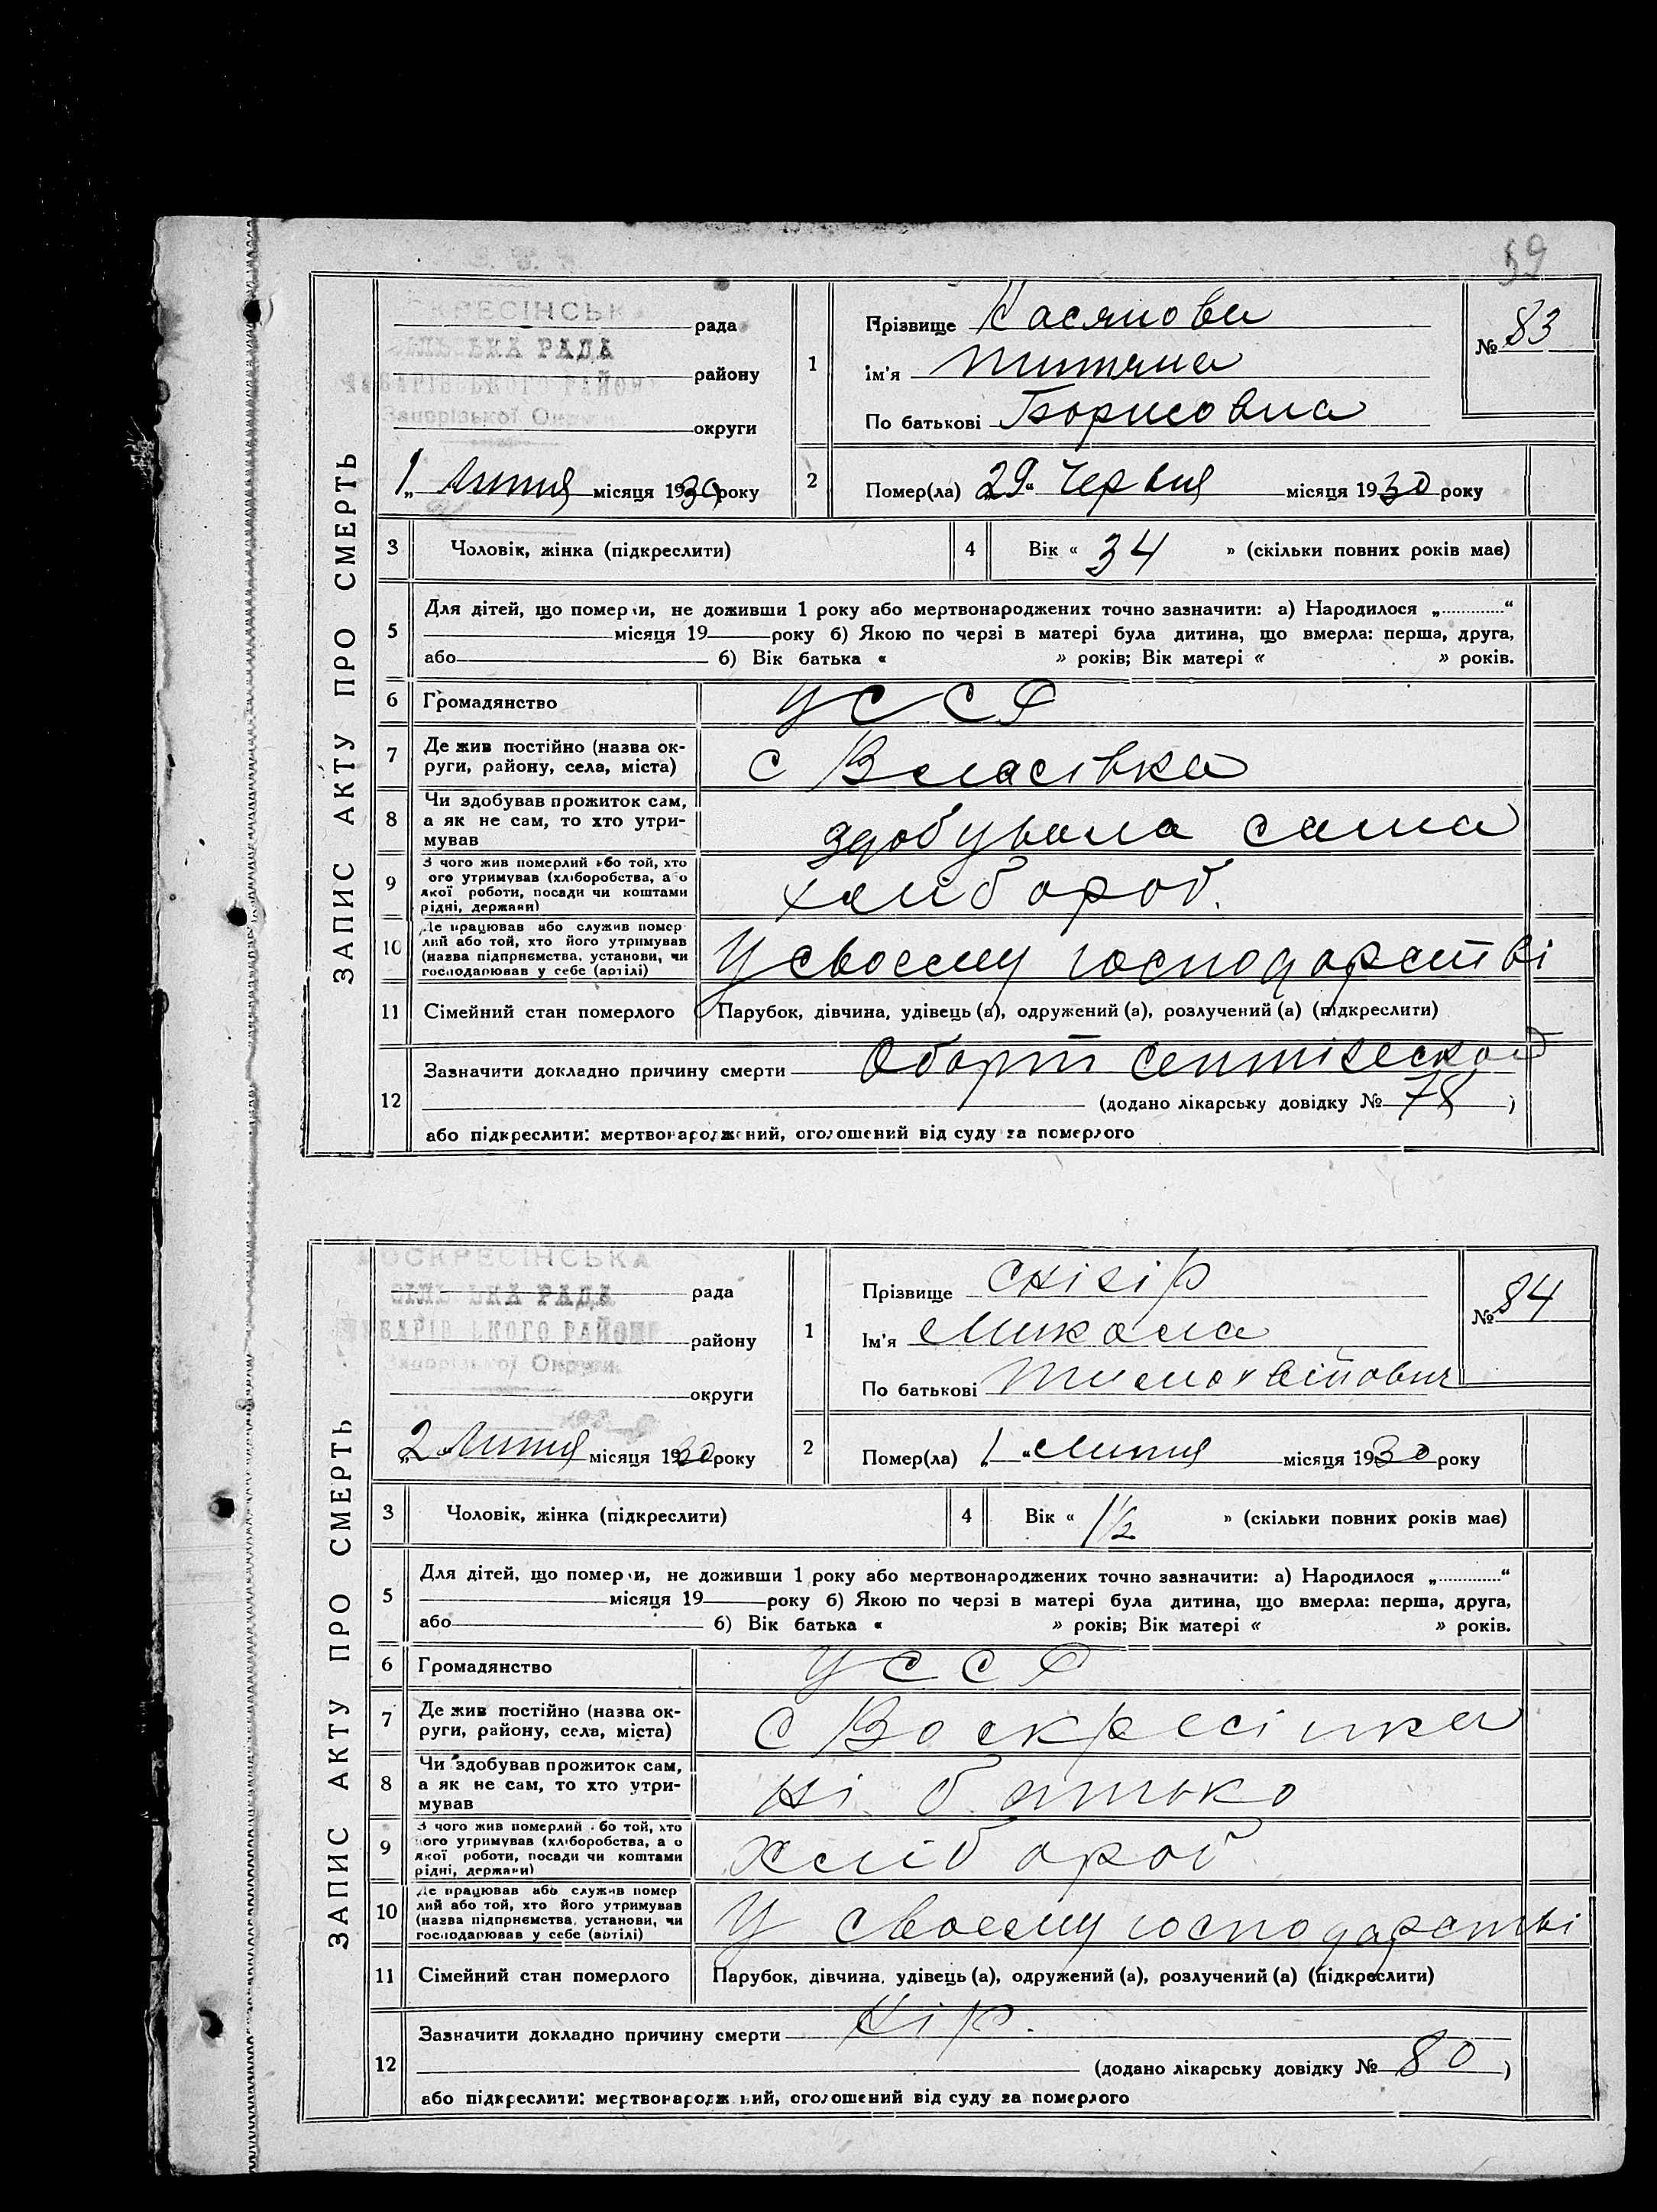 39
ЗАПИС АКТУ ПРО СМЕРТЬ
рада
СІЛЬСЬКА РАДА
району
Запорізької Округи
округи
1 Липня місяця 1930 року
1
Прізвище Касянова
ім'я Титяна
По батькові Борисовна
№ 83
2
Помер(ла) „29“ Червня місяця 1930 року
3 Чоловік, жінка (підкреслити)
4 Вік « 34 » (скільки повних років має)
5 Для дітей, що померли, не доживши 1 року або мертвонароджених точно зазначити: а) Народилося „............“
місяця 19 року б) Якою по черзі в матері була дитина, що вмерла: перша, друга,
або б) Вік батька « » років; Вік матері « » років.
6 Громадянство УССР
7 Де жив постійно (назва ок-
руги, району, села, міста)
с Власівка
8 Чи здобував прожиток сам,
а як не сам, то хто утри-
мував
здобувала сама
9 З чого жив померлий або той, хто
ого утримував (хліборобства, або
якої роботи, посади чи коштами
рідні, держави)
хлібороб.
10 Де працював або служив помер
лий або той, хто його утримував
(назва підприємства, установи, чи
господарював у себе (артілі)
У своєму господарстві
11 Сімейний стан померлого Парубок, дівчина, удівець (а), одружений (а), розлучений (а) (підкреслити)
12 Зазначити докладно причину смерти Оборт септіческой
(додано лікарську довідку № 78 )
або підкреслити: мертвонароджений, оголошений від суду за померлого
ЗАПИС АКТУ ПРО СМЕРТЬ
ВОСКРЕСІНСЬКА
рада
СІЛЬСЬКА РАДА
району
Запорізької Округи
округи
„2 Липня місяця 1930 року
1
Прізвище Снігір
Ім'я Микола
По батькові
№ 84
2
Помер(ла) „1“ Липня місяця 1930 року
3 Чоловік, жінка (підкреслити)
4 Вік « 1½ » (скільки повних років має)
5 Для дітей, що померли, не доживши 1 року або мертвонароджених точно зазначити: а) Народилося „............“
місяця 19 року б) Якою по черзі в матері була дитина, що вмерла: перша, друга,
або б) Вік батька « » років; Вік матері « » років.
6 Громадянство УССР
7 Де жив постійно (назва ок-
руги, району, села, міста)
с Воскресінка
8 Чи здобував прожиток сам,
а як не сам, то хто утри-
мував
Ні батько
9 З чого жив померлий або той, хто
його утримував (хліборобства, або
якої роботи, посади чи коштами
рідні, держави)
хлібороб
10 Де працював або служив помер
лий або той, хто його утримував
(назва підприємства, установи, чи
господарював у себе (артілі)
У своєму господарстві
11 Сімейний стан померлого Парубок, дівчина, удівець (а), одружений (а), розлучений (а) (підкреслити)
12 Зазначити докладно причину смерти Кір.
(додано лікарську довідку № 80 )
або підкреслити: мертвонароджений, оголошений від суду за померлого